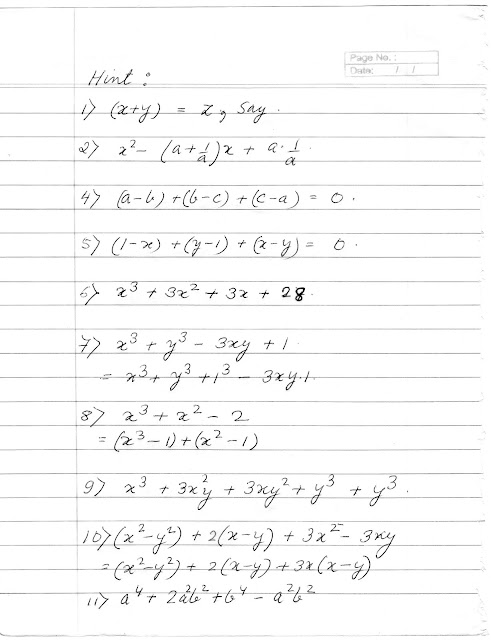 Page No. :
Date: / /
Hint :
1) (x+y) = z, say.
2) x² - (a + 1/a)x + a·1/a.
4) (a-b)+(b-c)+(c-a) = 0.
5) (1-x)+(y-1)+(x-y) = 0.
6) x³ + 3x² + 3x + 28.
7) x³ + y³ - 3xy + 1.
= x³ + y³ + 1³ - 3xy.1.
8) x³ + x² - 2
= (x³-1)+(x²-1)
9) x³ + 3x²y + 3xy² + y³ + y³.
10) (x²-y²) + 2(x-y) + 3x² - 3xy
= (x²-y²) + 2(x-y) + 3x(x-y)
11) a⁴ + 2a²b² + b⁴ - a²b²